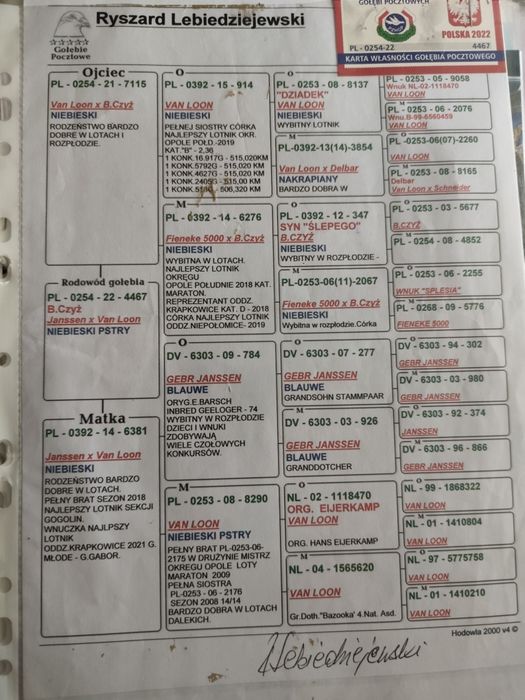 Ryszard Lebiedziejewski
Gołębie
Pocztowe
GOŁĘBI POCZTOWYCH
POLSKA 2022
PL - 0254-22
4467
KARTA WŁASNOŚCI GOŁĘBIA POCZTOWEGO
Ojciec
PL - 0254 - 21 - 7115
Van Loon x B.Czyż
NIEBIESKI
RODZEŃSTWO BARDZO
DOBRE W LOTACH I
ROZPŁODZIE.
Rodowód gołebia
PL - 0254 - 22 - 4467
B.Czyż
Janssen x Van Loon
NIEBIESKI PSTRY
Matka
PL - 0392 - 14 - 6381
Janssen x Van Loon
NIEBIESKI
RODZEŃSTWO BARDZO
DOBRE W LOTACH.
PEŁNY BRAT SEZON 2018
NAJLEPSZY LOTNIK SEKCJI
GOGOLIN.
WNUCZKA NAJLEPSZY
LOTNIK
ODDZ.KRAPKOWICE 2021 G.
MŁODE - G.GABOR.
O
PL - 0392 - 15 - 914
VAN LOON
NIEBIESKI
PEŁNEJ SIOSTRY CÓRKA
NAJLEPSZY LOTNIK OKR.
OPOLE POŁD -2019
KAT "B" - 2,36
1 KONK.16.917G - 515,020KM
1 KONK.5792G - 515,020 KM
1 KONK 4627G - 515,020 KM
1 KONK.2405G - 515,00 KM
506,320 KM
M
PL - 0392 - 14 - 6276
Fieneke 5000 x B.Czyż
NIEBIESKI
WYBITNA W LOTACH.
NAJLEPSZY LOTNIK
OKRĘGU
OPOLE POŁUDNIE 2018 KAT.
MARATON.
REPREZENTANT ODDZ.
KRAPKOWICE KAT. D - 2018
CÓRKA NAJLEPSZY LOTNIK
ODDZ.NIEPOŁOMICE - 2019
O
DV - 6303 - 09 - 784
GEBR JANSSEN
BLAUWE
ORYG.E.BARSCH
INBRED GEELOGER - 74
WYBITNY W ROZPŁODZIE
DZIECI I WNUKI
ZDOBYWAJĄ
WIELE CZOŁOWYCH
KONKURSÓW.
M
PL - 0253 - 08 - 8290
VAN LOON
NIEBIESKI PSTRY
PEŁNY BRAT PL-0253-06-
2175 W DRUŻYNIE MISTRZ
OKRĘGU OPOLE LOTY
MARATON 2009
PEŁNA SIOSTRA
PL -0253 - 06 - 2176
SEZON 2008 14/14
BARDZO DOBRA W LOTACH
DALEKICH.
O
PL - 0253 - 08 - 8137
"DZIADEK"
VAN LOON
NIEBIESKI
WYBITNY LOTNIK
M
PL-0392-13(14)-3854
Van Loon x Delbar
NAKRAPIANY
BARDZO DOBRA W
O
PL - 0392 - 12 - 347
SYN "ŚLEPEGO"
B.CZYŻ
NIEBIESKI
WYBITNY W ROZPŁODZIE -
M
PL-0253-06(11)-2067
Fieneke 5000 x B.Czyż
NIEBIESKI
Wybitna w rozpłodzie.Córka
O
DV - 6303 - 07 - 277
GEBR JANSSEN
BLAUWE
GRANDSOHN STAMMPAAR
M
DV - 6303 - 03 - 926
GEBR JANSSEN
BLAUWE
GRANDDOTCHER
O
NL - 02 - 1118470
ORG. EIJERKAMP
VAN LOON
ORG. HANS EIJERKAMP
M
NL - 04 - 1565620
VAN LOON
Gr.Doth."Bazooka' 4.Nat. Asd.
PL - 0253 - 05 - 9058
Wnuk NL-02-1118470
VAN LOON
M
PL - 0253 - 06 - 2076
Wnu.B-99-6560459
VAN LOON
O
PL -0253-06(07)-2260
VAN LOON
M
PL - 0253 - 08 - 8165
Delbar
Van Loon x Schneider
O
PL - 0253 - 03 - 5677
B.CZYŻ
M
PL - 0254 - 08 - 4852
O
PL - 0253 - 06 - 2255
WNUK "SPLESIA"
M
PL - 0268 - 09 - 5776
FIENEKE 5000
O
DV - 6303 - 94 - 302
GEBR JANSSEN
M
DV - 6303 - 03 - 980
GEBR JANSSEN
O
DV - 6303 - 92 - 374
JANSSEN
M
DV - 6303 - 96 - 866
GEBR JANSSEN
O
NL - 99 - 1868322
VAN LOON
M
NL - 01 - 1410804
VAN LOON
O
NL - 97 - 5775758
VAN LOON
M
NL - 01 - 1410210
VAN LOON
Hodowla 2000 v4 ©
Lebiedziejewski